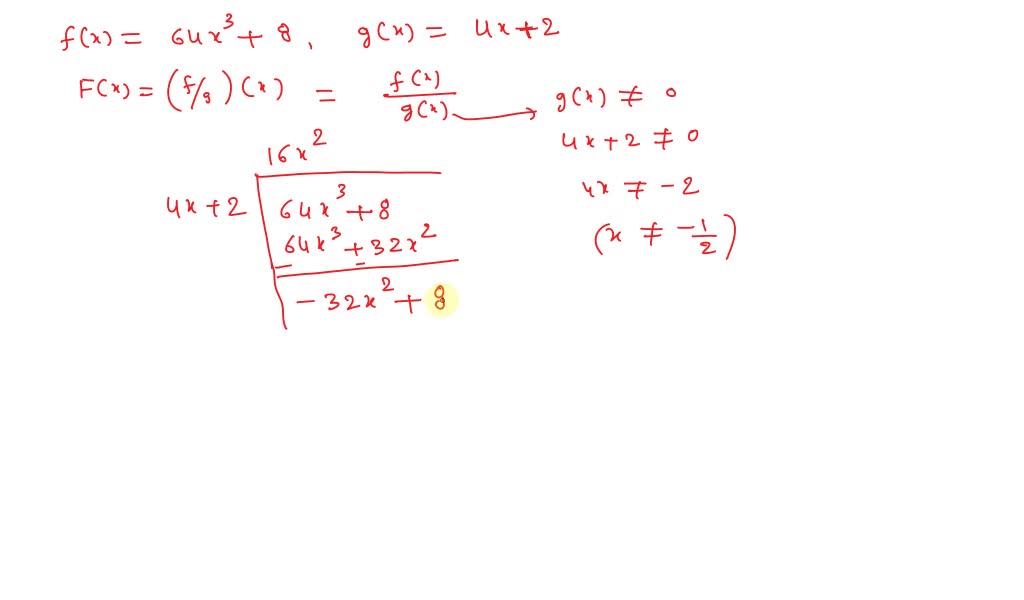 f(x) = 64x³ + 8, g(x) = 4x + 2
F(x) = (f/g)(x) = f(x)/g(x) → g(x) ≠ 0
4x + 2 ≠ 0
16x²
4x ≠ -2
4x + 2 64x³ + 8
(x ≠ -1/2)
64x³ + 32x²
- -
-32x² + 8